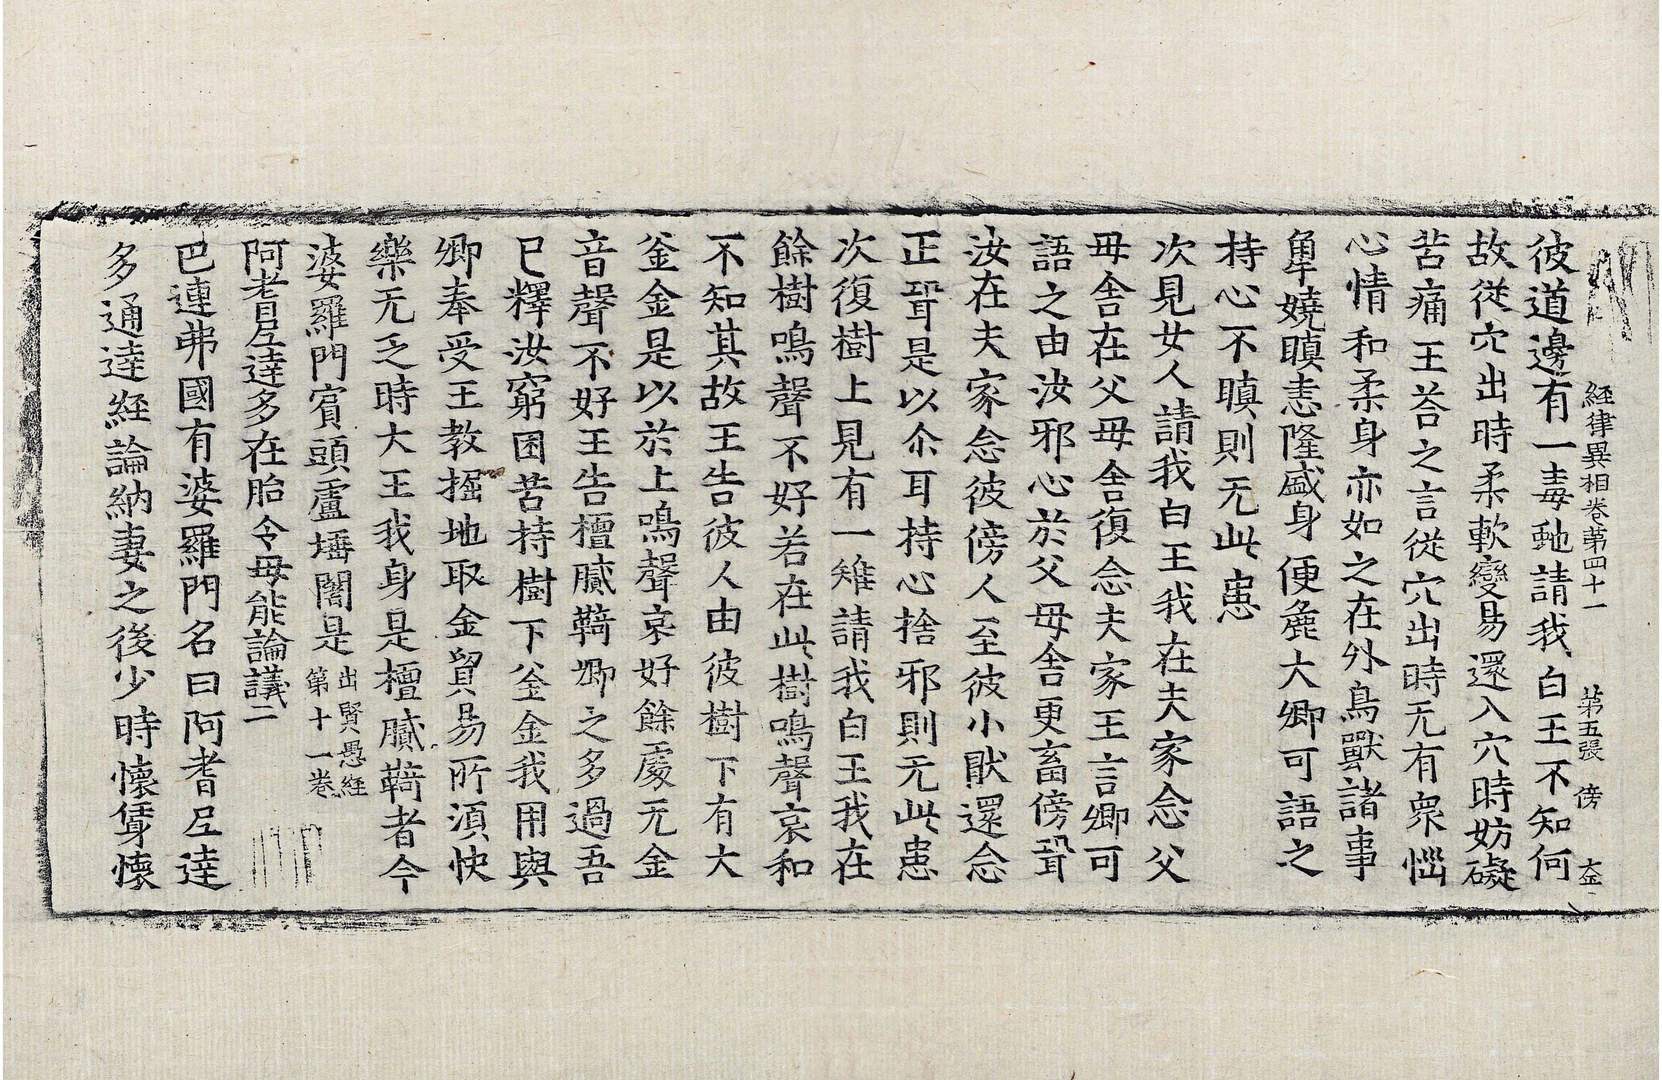 経律異相卷第四十一 第五張 傍
彼道邊有一毒虵請我白王不知何
故從穴出時柔軟變易還入穴時妨礙
苦痛王荅之言從穴出時无有衆惱
心情和柔身亦如之在外鳥獸諸事
犇嬈瞋恚隆盛身便麁大卿可語之
持心不瞋則无此患
次見女人請我白王我在夫家念父
母舍在父母舍復念夫家王言卿可
語之由汝邪心於父母舍更畜傍聟
汝在夫家念彼傍人至彼小猒還念
正聟是以尒耳持心捨邪則无此患
次復樹上見有一雉請我白王我在
餘樹鳴聲不好若在此樹鳴聲哀和
不知其故王告彼人由彼樹下有大
釜金是以於上鳴聲哀好餘處无金
音聲不好王告檀膩䩭卿之多過吾
已釋汝窮困苦持樹下釜金我用與
卿奉受王教掘地取金貿易所須快
樂无乏時大王我身是檀膩䩭者今
婆羅門賓頭盧埵闍是出賢愚經第十一卷
阿耆尼達多在胎令母能論議二
巴連弗國有婆羅門名曰阿耆尼達
多通達經論納妻之後少時懷㝃懷